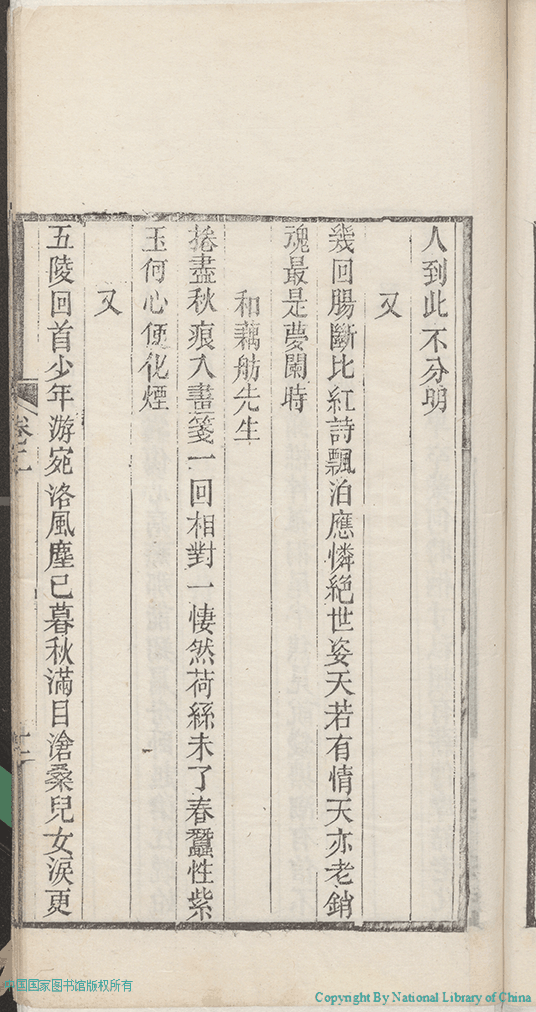 人到此不分明
又
幾回腸斷比紅詩飄泊應憐絕世姿天若有情天亦老銷
魂最是夢闌時
和藕舫先生
捲盡秋痕入畫箋一回相對一悽然荷絲未了春蠶性紫
玉何心便化煙
又
五陵回首少年游宛洛風塵已暮秋滿目滄桑兒女淚更
卷二
中国国家图书馆版权所有
Copyright By National Library of China